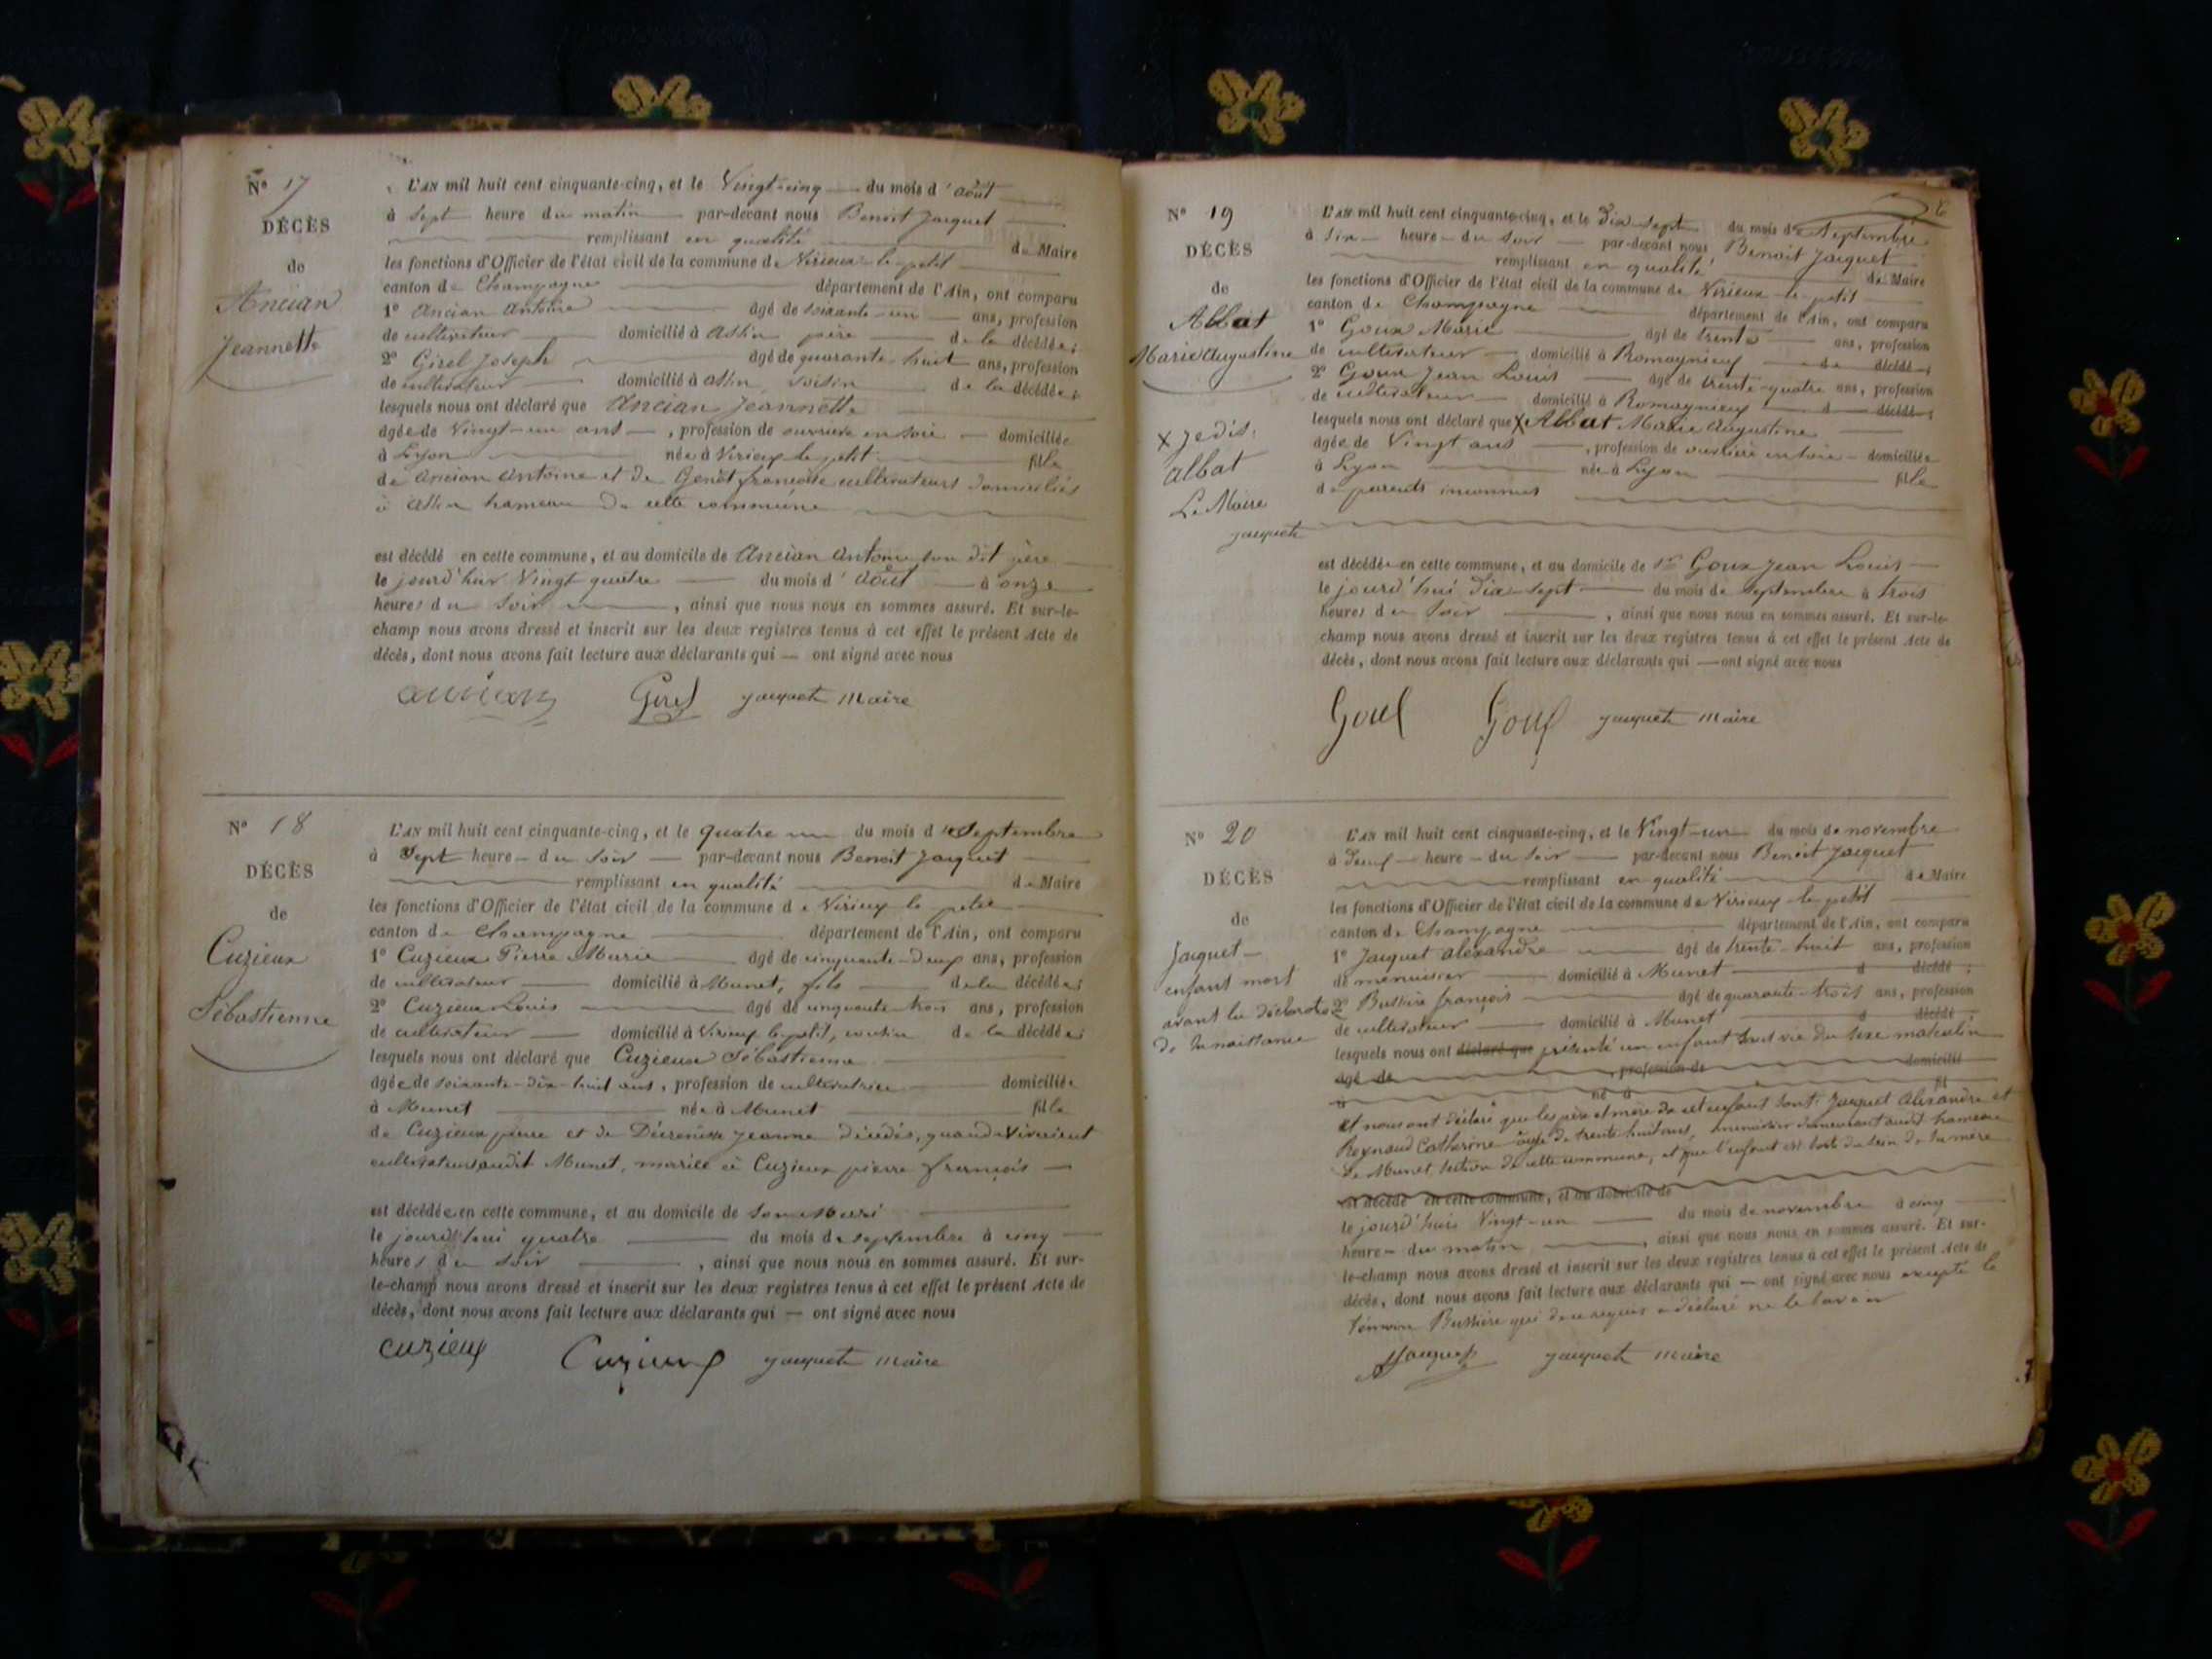 N° 17
DÉCÈS
de
Ancian
Jeannette
L'AN mil huit cent cinquante-cinq, et le Vingt-cinq du mois d'août
à sept heure du matin par-devant nous Benoit Jacquet
remplissant en qualité de Maire
les fonctions d'Officier de l'état civil de la commune de Virieux le petit
canton de Champagne département de l'Ain, ont comparu
1° Ancian Antoine âgé de soixante-un ans, profession
de cultivateur domicilié à père de la décédée;
2° Girel Joseph âgé de quarante huit ans, profession
de cultivateur domicilié à voisin de la décédée;
lesquels nous ont déclaré que Ancian Jeannette
âgée de Vingt-un ans, profession de ouvrière en soie domiciliée
à Lyon née à Virieux le petit fille
de Ancian Antoine et de Genet françoise cultivateurs domiciliés
à hameau de cette commune
est décédé en cette commune, et au domicile de Ancian Antoine son dit père
le jourd'hui Vingt quatre du mois d'août à onze
heures du soir, ainsi que nous nous en sommes assuré. Et sur-le-
champ nous avons dressé et inscrit sur les deux registres tenus à cet effet le présent Acte de
décès, dont nous avons fait lecture aux déclarants qui — ont signé avec nous
ancian Girel jacquet maire
N° 18
DÉCÈS
de
Cuzieux
Sébastienne
L'AN mil huit cent cinquante-cinq, et le quatre du mois de Septembre
à Sept heure du soir par-devant nous Benoit Jacquet
remplissant en qualité de Maire
les fonctions d'Officier de l'état civil de la commune de Virieux le petit
canton de Champagne département de l'Ain, ont comparu
1° Cuzieux Pierre Marie âgé de cinquante-deux ans, profession
de cultivateur domicilié à Munet, fils de la décédée;
2° Cuzieux Louis âgé de cinquante trois ans, profession
de cultivateur domicilié à Virieux le petit, cousin de la décédée;
lesquels nous ont déclaré que Cuzieux Sébastienne
âgée de soixante-dix-huit ans, profession de cultivatrice domiciliée
à Munet née à Munet fille
de Cuzieux pierre et de Jeanne décédés, quand vivaient
cultivateurs audit Munet, mariée à Cuzieux pierre françois
est décédée en cette commune, et au domicile de son Mari
le jourd'hui quatre du mois de septembre à cinq
heures du soir, ainsi que nous nous en sommes assuré. Et sur-
le-champ nous avons dressé et inscrit sur les deux registres tenus à cet effet le présent Acte de
décès, dont nous avons fait lecture aux déclarants qui — ont signé avec nous
cuzieux Cuzieux jacquet maire
N° 19
DÉCÈS
de
Albat
Marie Augustine
X je dis.
albat
Le Maire
jacquet
L'AN mil huit cent cinquante-cinq, et le Dix sept du mois de Septembre
à Six heure du soir par-devant nous Benoit Jacquet
remplissant en qualité de Maire
les fonctions d'Officier de l'état civil de la commune de Virieux le petit
canton de Champagne département de l'Ain, ont comparu
1° Goux Marie âgé de trente ans, profession
de cultivateur domicilié à Romagnieux de décédé;
2° Goux Jean Louis âgé de trente-quatre ans, profession
de cultivateur domicilié à Romagnieux d décédé;
lesquels nous ont déclaré que X Albat Marie Augustine
âgée de Vingt ans, profession de ouvrière en soie domiciliée
à Lyon née à Lyon fille
de parents inconnus
est décédée en cette commune, et au domicile de Goux Jean Louis
le jourd'hui Dix sept du mois de Septembre à trois
heures du soir, ainsi que nous nous en sommes assuré. Et sur-le-
champ nous avons dressé et inscrit sur les deux registres tenus à cet effet le présent Acte de
décès, dont nous avons fait lecture aux déclarants qui — ont signé avec nous
Goux Goux jacquet maire
N° 20
DÉCÈS
de
Jacquet
enfant mort
avant la déclaration
de sa naissance
L'AN mil huit cent cinquante-cinq, et le Vingt-un du mois de novembre
à heure du soir par-devant nous Benoit Jacquet
remplissant en qualité de Maire
les fonctions d'Officier de l'état civil de la commune de Virieux le petit
canton de Champagne département de l'Ain, ont comparu
1° Jacquet alexandre âgé de trente-huit ans, profession
de menuisier domicilié à Munet d décédé;
2° Bussière françois âgé de quarante-trois ans, profession
de cultivateur domicilié à Munet d décédé
lesquels nous ont déclaré que présenté un enfant sans vie du sexe masculin
âgé de, profession de domicilié
à né à fil
et nous ont déclaré que les père et mère de cet enfant sont Jacquet Alexandre et
Reynaud Catherine âgée de trente huit ans, menuisier demeurant audit hameau
de Munet, section de cette commune, et que l'enfant est sorti du sein de sa mère
est décédé en cette commune, et au domicile de
le jourd'hui Vingt-un du mois de novembre à cinq
heure du matin, ainsi que nous nous en sommes assuré. Et sur-
le-champ nous avons dressé et inscrit sur les deux registres tenus à cet effet le présent Acte de
décès, dont nous avons fait lecture aux déclarants qui — ont signé avec nous excepté le
témoin Bussière qui de ce requis a déclaré ne le savoir
Jacquet jacquet maire